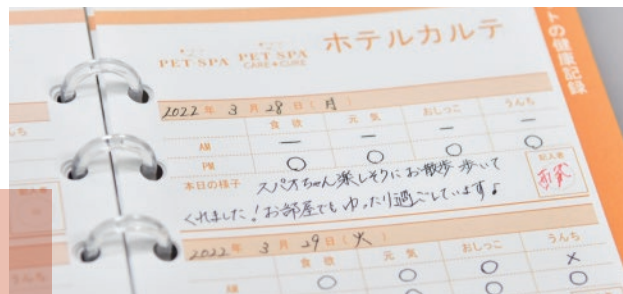 ホテルカルテ
PET SPA PET SPA
CARE+CURE
トの健康記録
2022年 3月 28日(月)
食欲 元気 おしっこ うんち
AM ー ー ー ー
PM ○ ○ ○ ○
本日の様子 スパオちゃん楽しそうにお散歩歩いて
くれました!お部屋でもゆったり過ごしています♪
記入者
2022年 3月 29日(火)
食欲 元気 おしっこ うんち
AM ○ ○ ○ ×